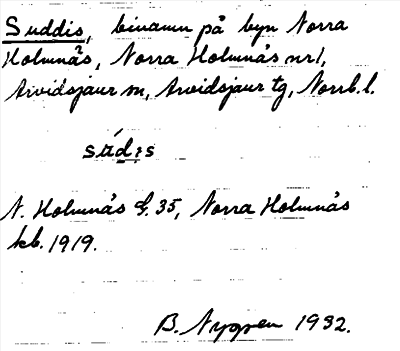 Suddis, binamn på byn Norra
Holmnäs, Norra Holmnäs nr1,
Arvidsjaur sn, Arvidsjaur tg, Norrb.l.
súdis
N. Holmnäs G. 35, Norra Holmnäs
kb. 1919.
B. Nygren 1932.